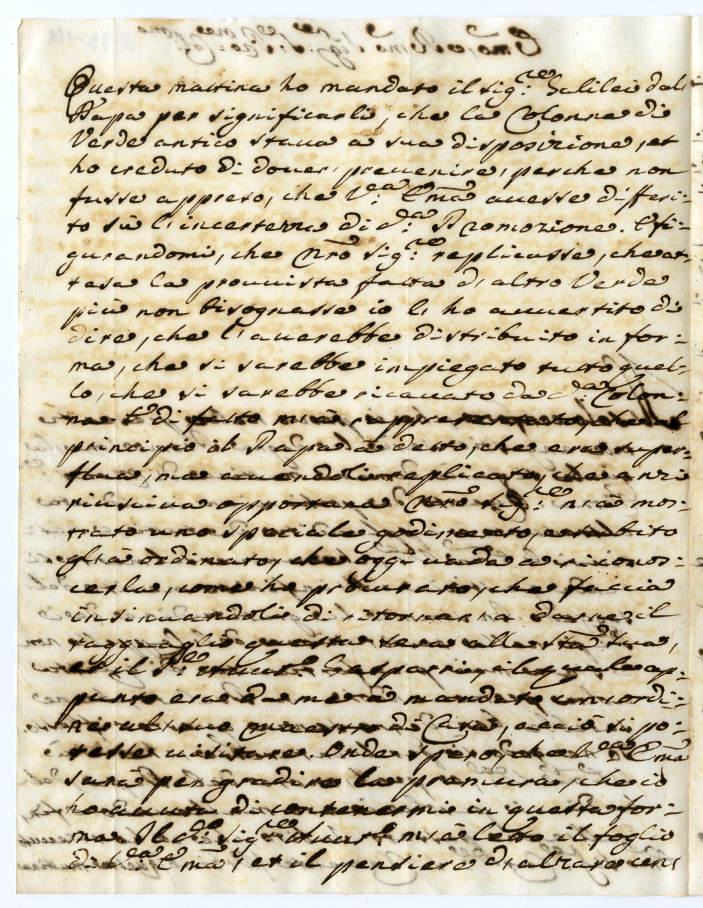 Questa mattina ho mandato il sig.re Galilei dal
Papa per significarli, che la Colonna di
Verde antico staua a sua disposizione, et
ho creduto di douer preuenire, perche non
fusse appreso, che V.a Em.a auesse differi-
to sù l'incertezza di d.a Promozione. E fi-
gurandomi, che Nrõ sig.re replicasse, che at-
tesa la prouuista fatta d'altro Verde
più non bisognasse io li ho auuertito di
dire, che l'auerebbe distribuito in for-
ma, che si sarebbe impiegato tutto quel-
lo, che si sarebbe ricauato da d.a Colon-
na di fatto mi à rappresentato, che al
principio il Papa à detto, che era super-
flua, ma auendoli replicato, che anzi
riusciua opportuna Nrõ sig.re ni à mos-
trato uno speciale godimento, e subito
gli à ordinato, che oggi uada a riconos-
cerla, come ho procurato, che faccia
insinuandoli di ritornare a darne il
ragguaglio questa sera alla Stà Sua,
et il Gasparri, il quale ap-
punto era da me à mandato un ordi-
ne al suo maestro di Casa, acciò si po-
tesse uisitare. Onde spero, che V.a Em.a
sarà per gradire la premura, che io
ho auuta di contenermi in questa for-
ma. Il sig.re m'à letto il foglio
di V.a Em.a, et il pensiere d'alzare